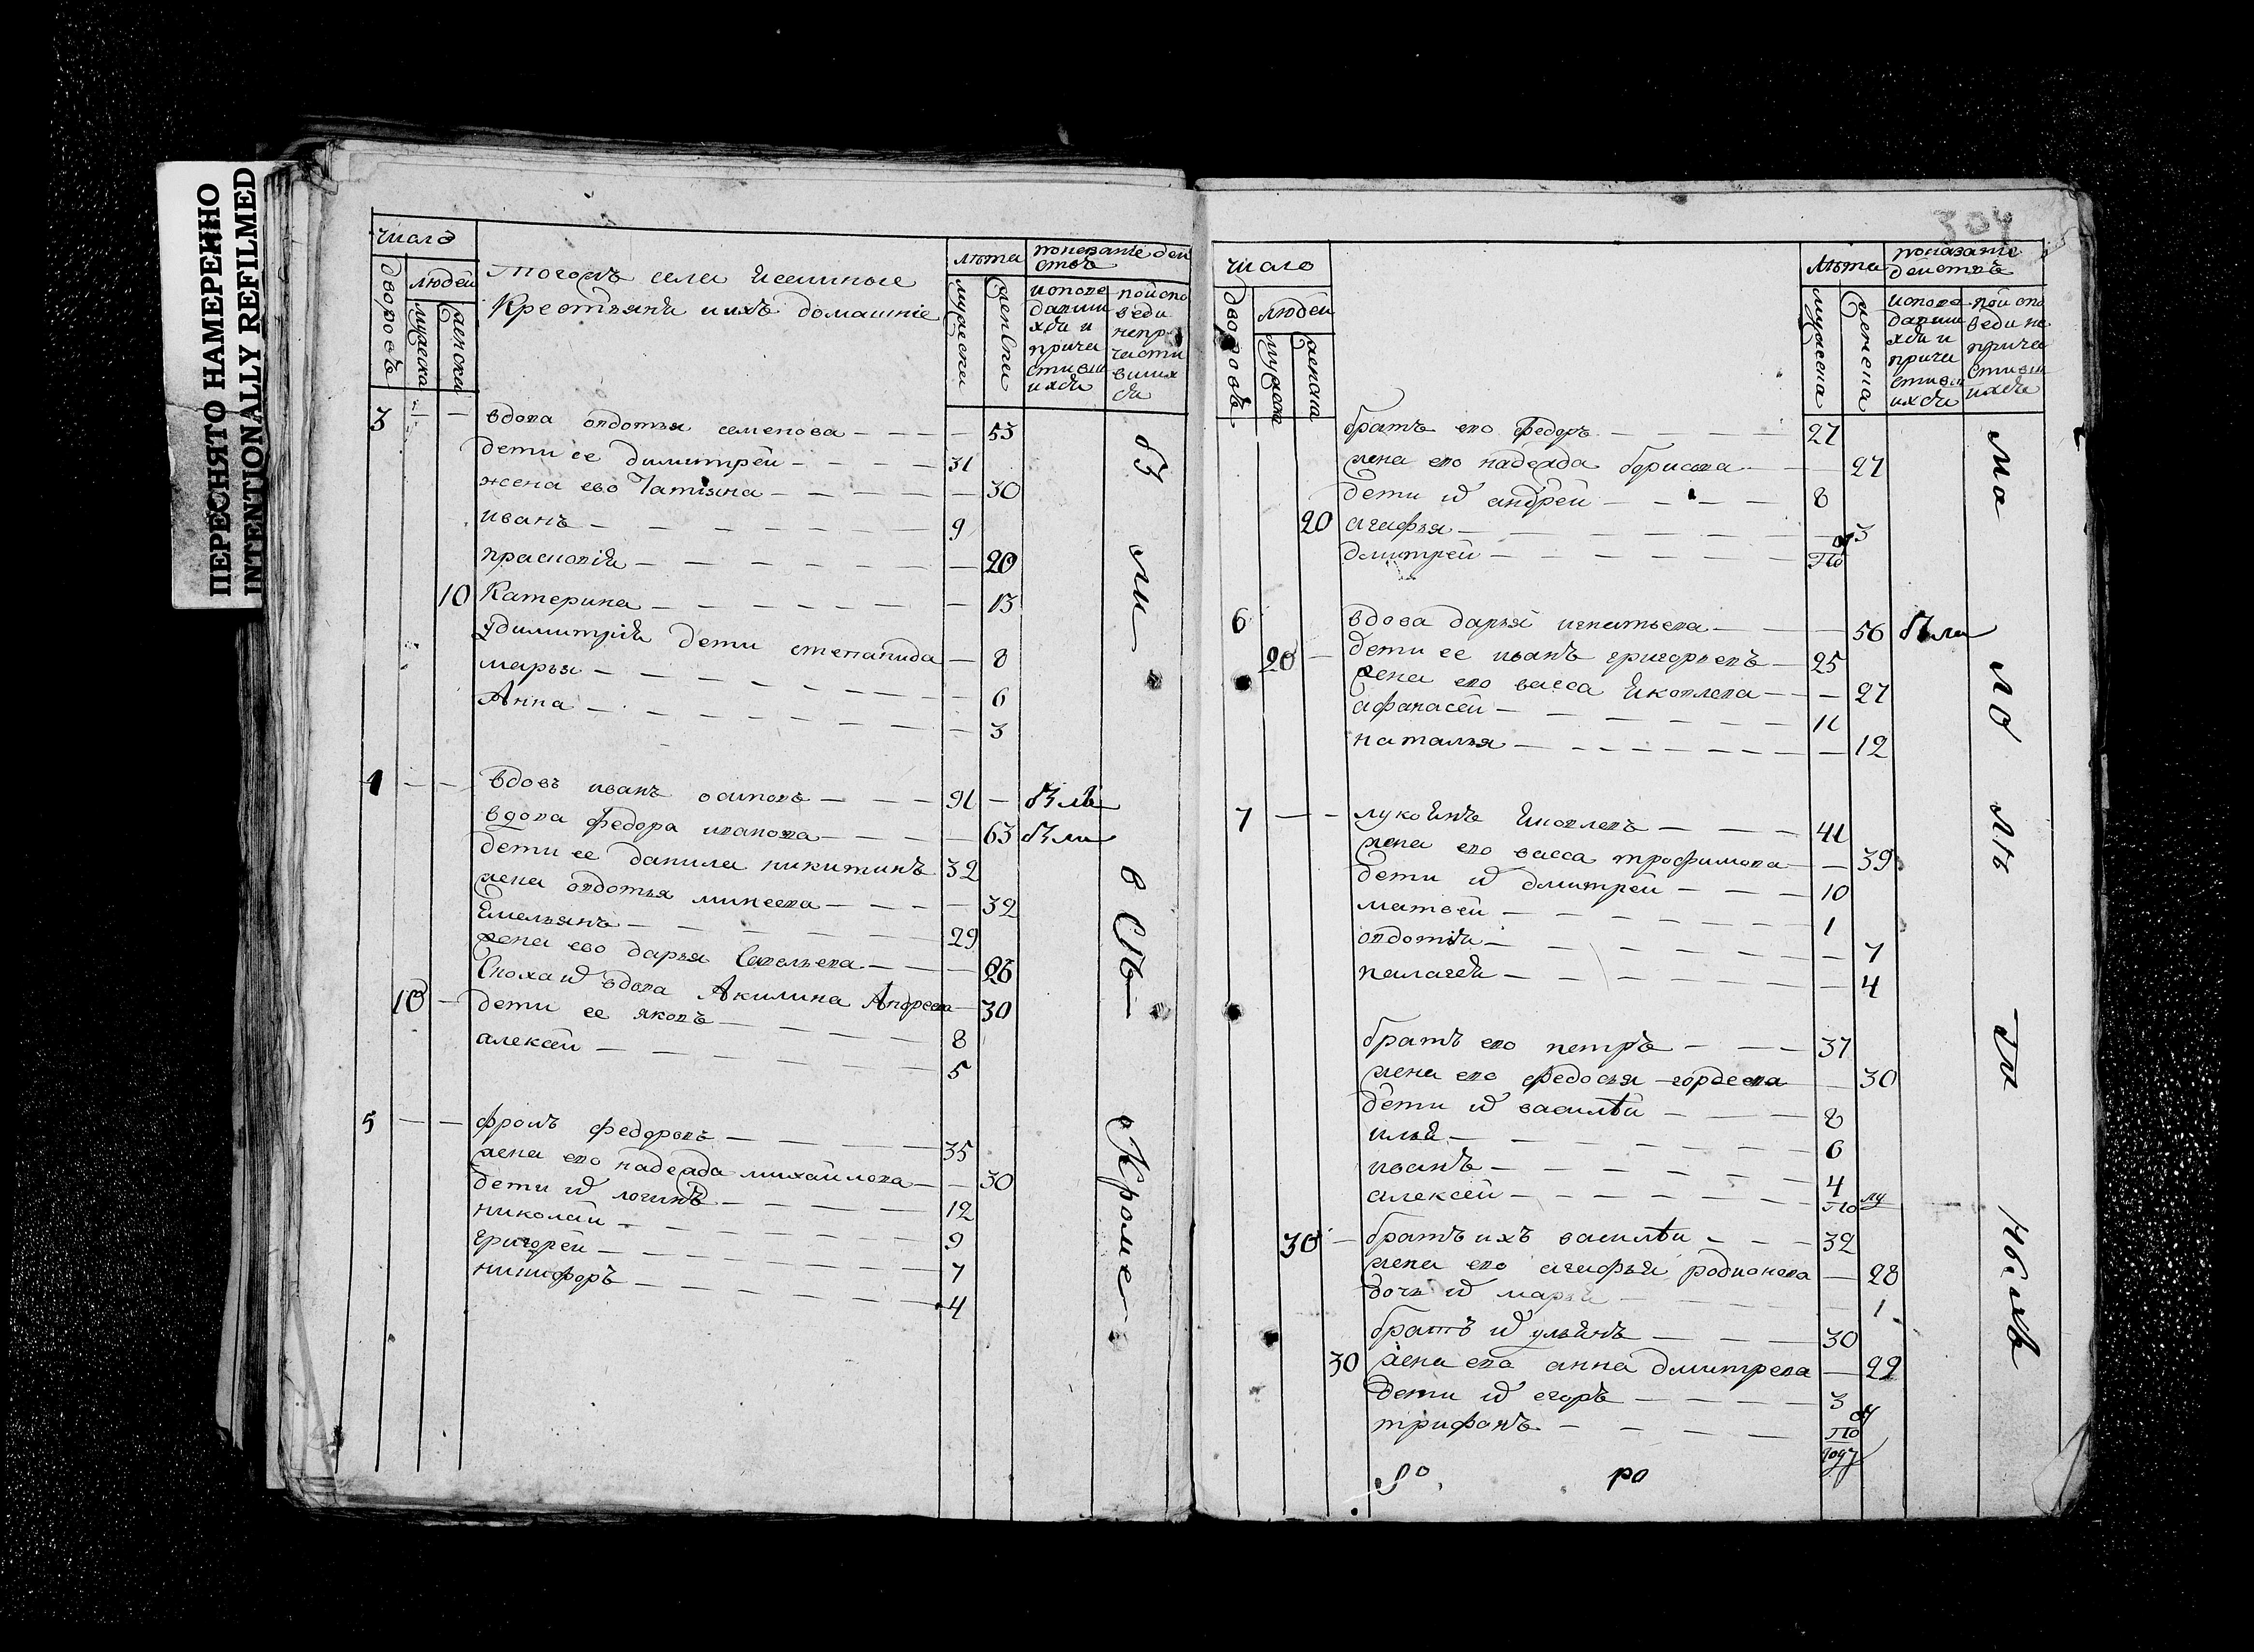 ПЕРЕСНЯТО НАМЕРЕННО
INTENTIONALLY REFILMED
число
дворовъ
людей
мужеска
женска
Тогожъ села
крестьяня и ихъ домашніе
лѣта
мужески
женски
показаніе дей
ствъ
испове
давши
хся и
прича
стивш
ихся
по испо
веди
непри
части
вших
ся
3 — — вдова овдотья семенова — — — — 53
дети ее димитрей — — — — 31
жена ево Татiяна — — — — — 30
иванъ — — — — — — 9
прасковiя — — — — — — — 20
10 Катерина — — — — — — — 13
у димитрiя дети степанида — 8
марья — — — — — — — 6
Анна — — — — — — — 3
4 — — вдовъ иванъ осиповъ — — — 91 — былъ
вдова федора иванова — — — — 63 были
дети ее данила никитинъ 32
жена овдотья минеева — — — — 32
Емельянъ — — — — — 29
жена ево дарья Савельева — — — 26
10 — вдова Акилина Андреева — 30
дети ее яковъ — — — — 8
алексей — — — — — — 5
5 — — федоровъ — — — — 35
жена его надежда михайлова — — 30
дети логинъ — — — — 12
николай — — — — — — 9
григорей — — — — — — 7
никифоръ — — — — — — 4
бы
ли
всѣ
Кроме
304
число
дворовъ
людей
мужска
женска
лѣта
мужеска
женска
показание
действъ
испове
давши
хся и
прича
стивш
ихся
по испо
веди не
прича
стивш
ихся
братъ его федоръ — — — — 27
жена его надежда борисова — — — 27
дети андрей — — — — 8
20 агафья — — — — — — — 3
дмитрей — — — — — — по
6 вдова дарья игнатьева — — — 56 были
20 — дети ее иванъ григорьевъ — 25
жена его васса Яковлева — — — 27
афанасей — — — — — — 11
наталья — — — — — — — 12
7 — — лукоянъ Яковлевъ — — — 41
жена его васса трофимова — — 39
дети дмитрей — — — 10
матвей — — — — — — 1
овдотiя — — — — — — — 7
палагея — — — — — — 4
братъ его петръ — — — 37
жена его федосья гордеева — 30
дети василей — — — 8
илья — — — — — — 6
иванъ — — — — — — 4
алексей — — — — — — по
30 — братъ ихъ василей — — — 32
жена его агафья родионова — 28
дочь марья — — — — — 1
братъ ульянъ — — — 30
30 жена его анна дмитрева — 22
дети егоръ — — — — 3
трифонъ — — — — — по
году
ма
ло
лѣ
т
ро